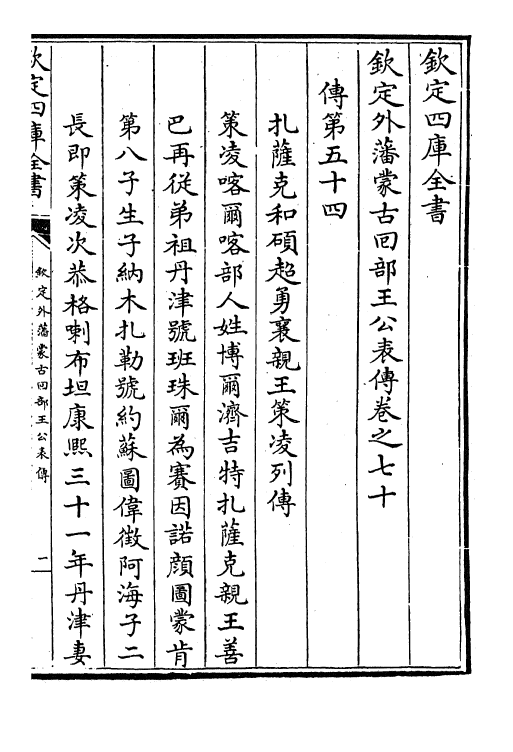 欽定四庫全書
欽定外藩蒙古回部王公表傳卷之七十
傳第五十四
扎薩克和碩超勇襄親王策凌列傳
策凌喀爾喀部人姓博爾濟吉特扎薩克親王善
巴再從弟祖丹津號班珠爾為賽因諾顔圖蒙肯
第八子生子納木扎勒號約蘇圖偉徵阿海子二
長即策凌次恭格喇布坦康熙三十一年丹津妻
欽定四庫全書
欽定外藩蒙古回部王公表傳
一